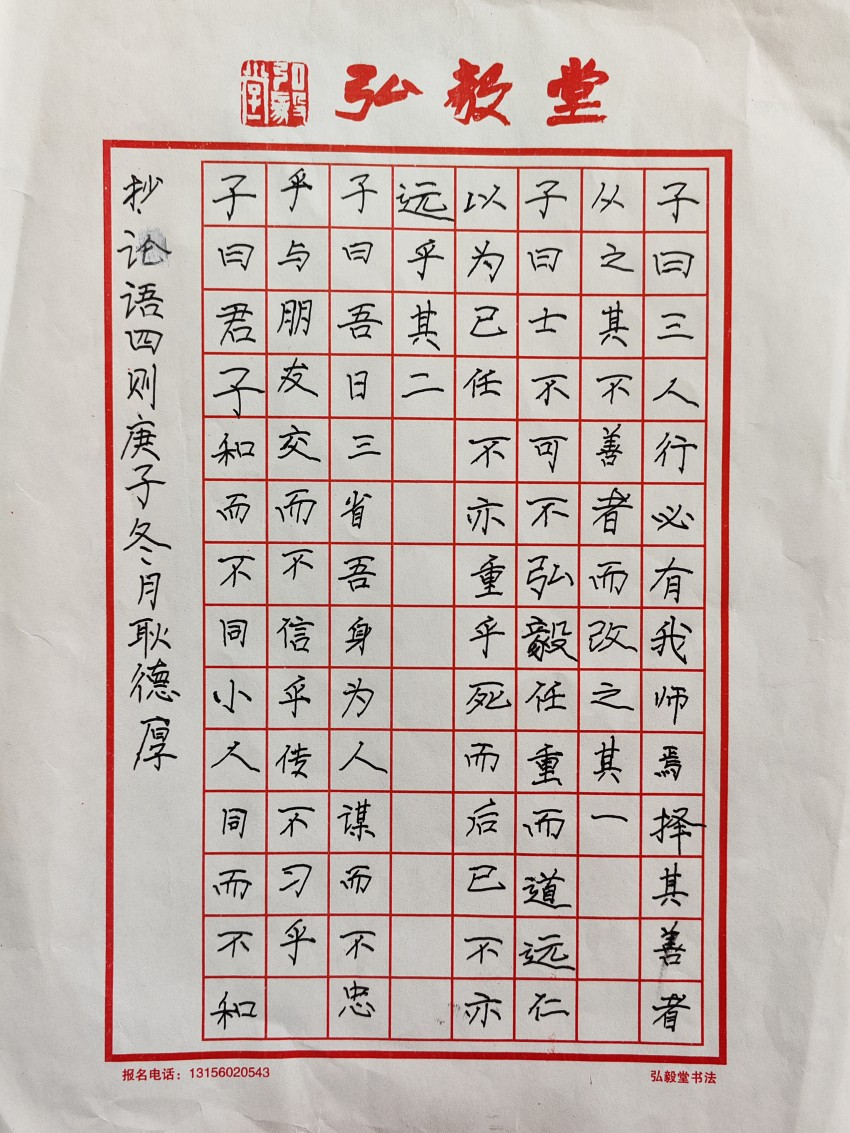 弘毅堂
弘毅堂
子曰三人行必有我师焉择其善者
从之其不善者而改之其一
子曰士不可不弘毅任重而道远仁
以为己任不亦重乎死而后已不亦
远乎其二
子曰吾日三省吾身为人谋而不忠
乎与朋友交而不信乎传不习乎
子曰君子和而不同小人同而不和
抄论语四则庚子冬月耿德厚
报名电话：13156020543
弘毅堂书法